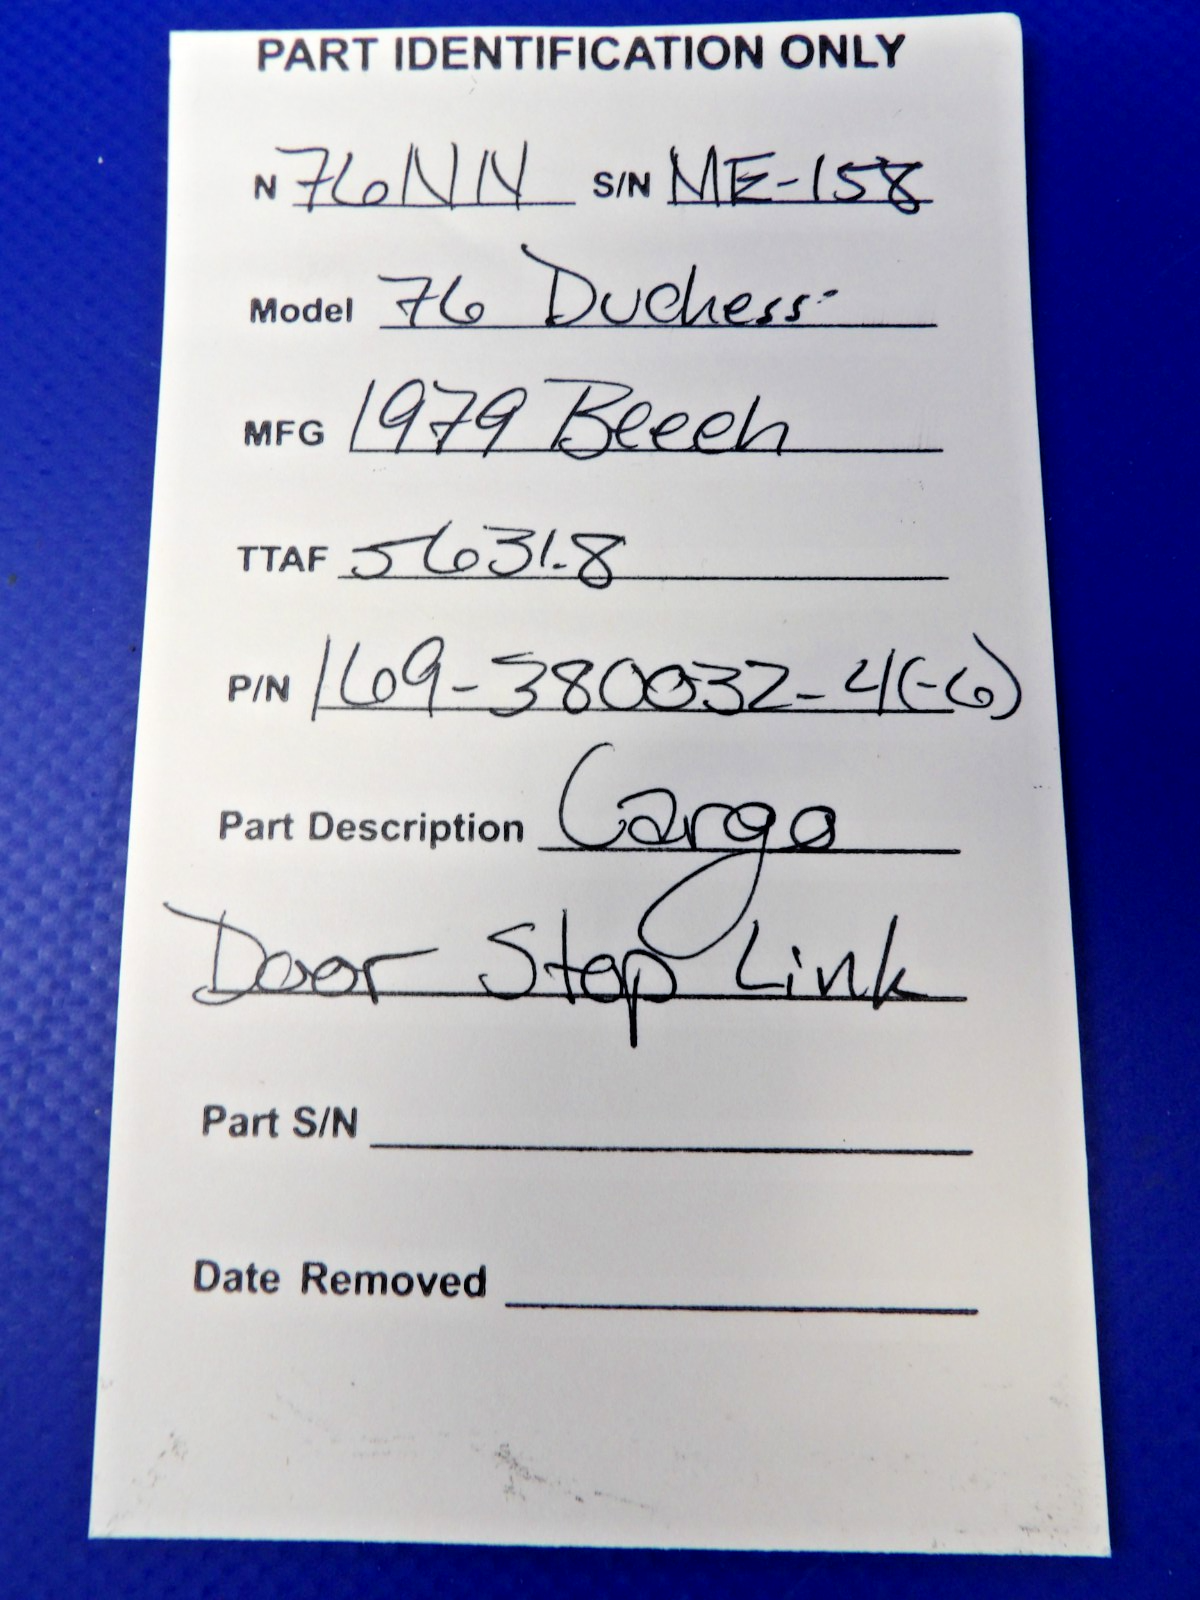 PART IDENTIFICATION ONLY
N 76NN S/N ME-158
Model 76 Duchess
MFG 1979 Beech
TTAF 5631.8
P/N 169-380032-4(-6)
Part Description Cargo
Door Stop Link
Part S/N
Date Removed